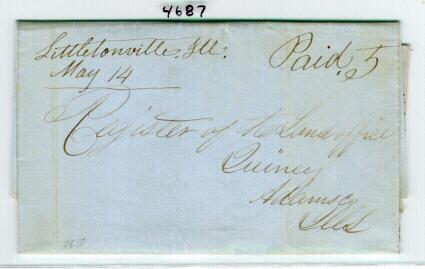 4687
Littletonville, Ill.
May 14
Paid, 5
Register of the Land office
Quincy
Adams Co
Ills